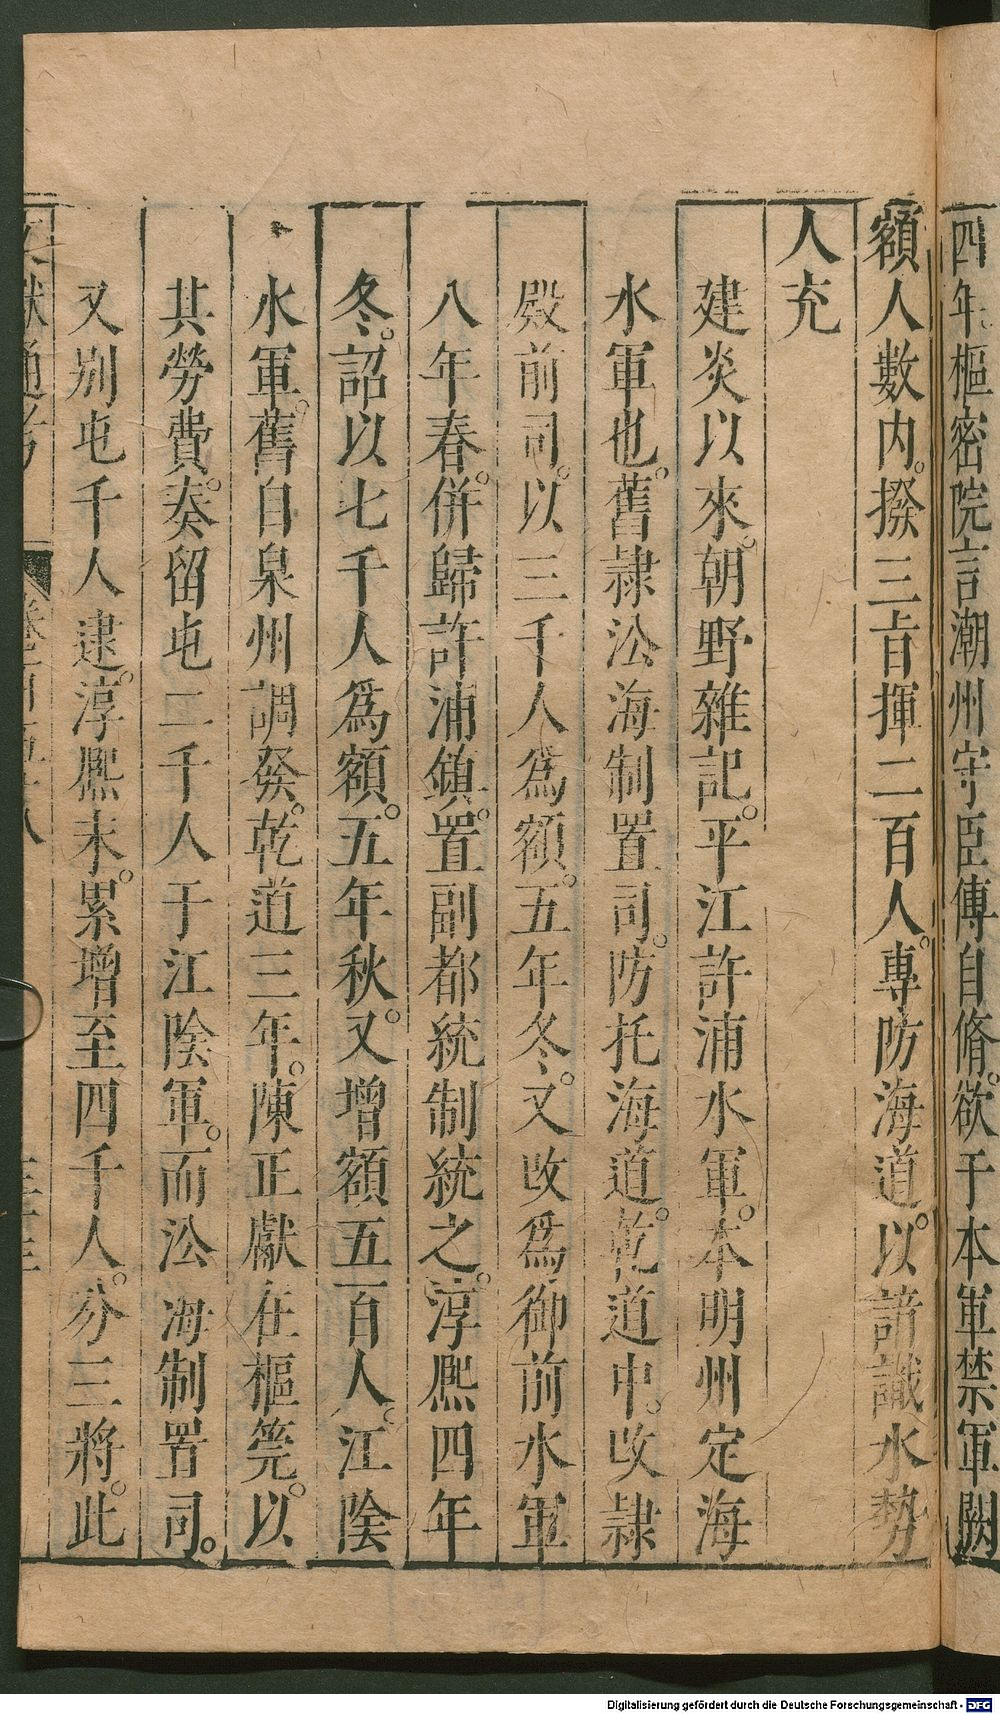 四年樞密院言潮州守臣傅自脩欲于本軍禁軍闕
額人數內。撥三百揮二百人。專防海道。以諳識水勢
人充
建炎以來。朝野雜記。平江許浦水軍。本明州定海
水軍也。舊隷㳂海制置司。防托海道。乾道中。改隷
殿前司。以三千人爲額。五年冬。又改爲御前水軍
八年春。併歸許浦鎮。置副都統制統之。淳熈四年
冬。詔以七千人爲額。五年秋。又增額五百人。江陰
水軍。舊自泉州調發。乾道三年。陳正獻在樞筦。以
其勞費。奏留屯二千人于江陰軍。而㳂海制置司。
又別屯千人逮。淳熈末。累增至四千人。分三將。此
文獻通考 卷之一百五十八
Digitalisierung gefördert durch die Deutsche Forschungsgemeinschaft - DFG